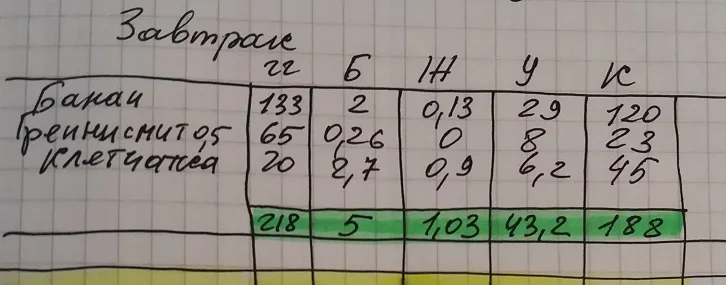 Завтрак
гг Б Ж У К
Банан 133 2 0,13 29 120
Гренни смит 0,5 65 0,26 0 8 23
Клетчатка 20 2,7 0,9 6,2 45
218 5 1,03 43,2 188